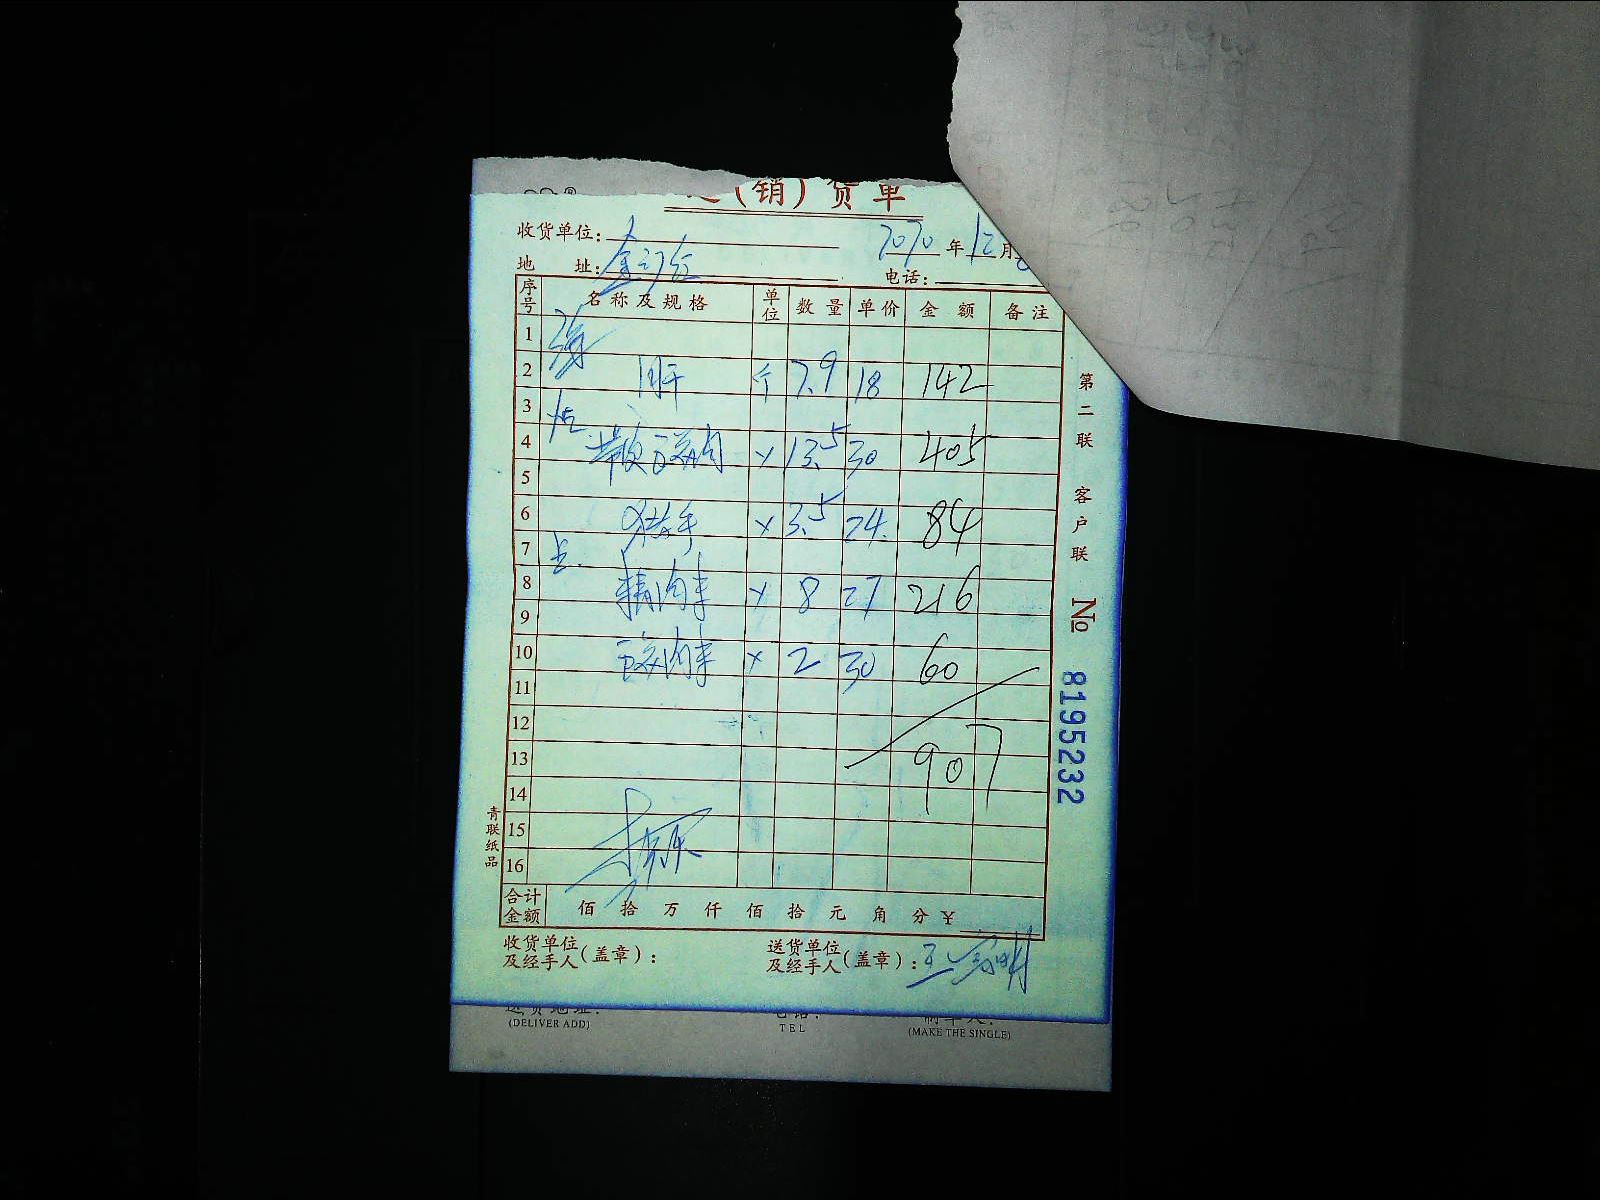 (销)货单
收货单位:
2020年12月
地 址:
电话:
序号 名称及规格 单位 数量 单价 金额 备注
1
2 肝 个 7.9 18 142
3
4 13.5 30 405
5
6 猪手 3.5 24 84
7
8 精肉末 8 27 216
9
10 肉末 2 30 60
11
12
13 907
14
15
16
合计金额 佰 拾 万 仟 佰 拾 元 角 分 ¥
收货单位及经手人(盖章):
送货单位及经手人(盖章):
第二联 客户联 No 8195232
青联纸品
(DELIVER ADD) TEL (MAKE THE SINGLE)